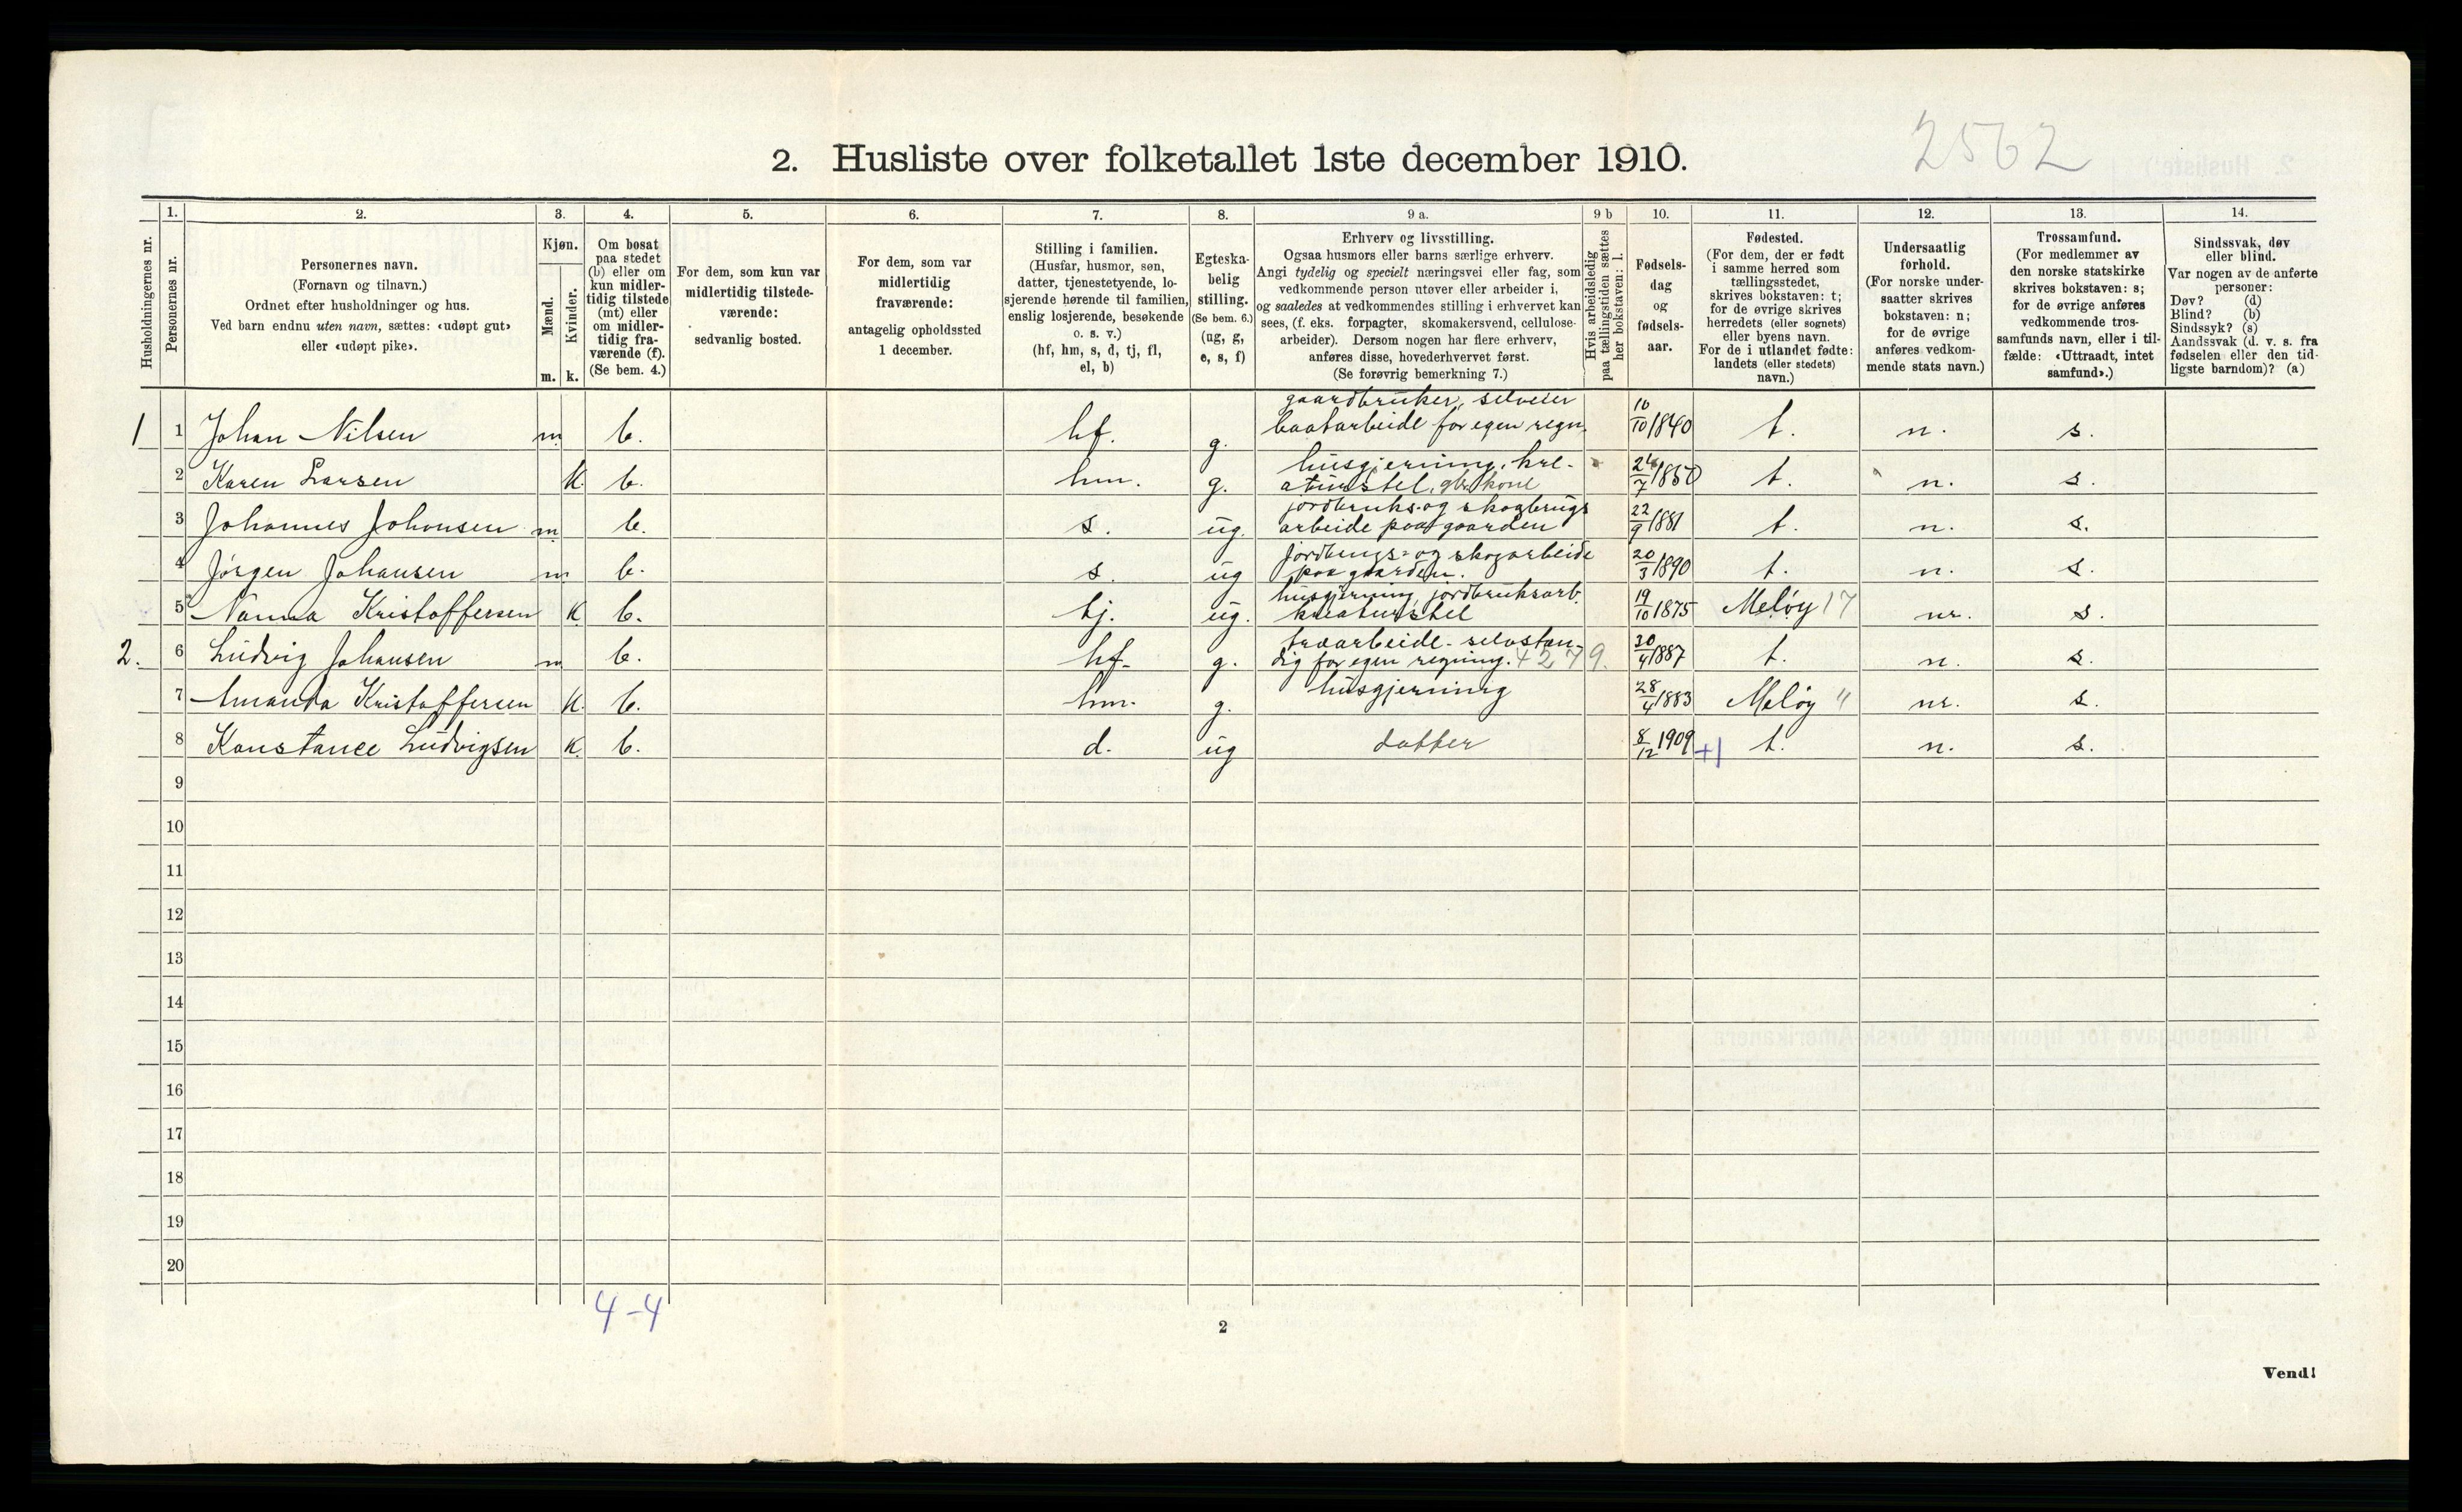 2562
2. Husliste over folketallet 1ste december 1910.
Husholdningernes nr.
1. Personernes nr.
2. Personernes navn. (Fornavn og tilnavn.) Ordnet efter husholdninger og hus. Ved barn endnu uten navn, sættes: «udøpt gut» eller «udøpt pike».
3. Kjøn. Mænd. m. Kvinder. k.
4. Om bosat paa stedet (b) eller om kun midler- tidig tilstede (mt) eller om midler- tidig fra- værende (f). (Se bem. 4.)
5. For dem, som kun var midlertidig tilstede- værende: sedvanlig bosted.
6. For dem, som var midlertidig fraværende: antagelig opholdssted 1 december.
7. Stilling i familien. (Husfar, husmor, søn, datter, tjenestetyende, lo- sjerende hørende til familien, enslig losjerende, besøkende o. s. v.) (hf, hm, s, d, tj, fl, el, b)
8. Egteska- belig stilling. (Se bem. 6.) (ug, g, e, s, f)
9 a. Erhverv og livsstilling. Ogsaa husmors eller barns særlige erhverv. Angi tydelig og specielt næringsvei eller fag, som vedkommende person utøver eller arbeider i, og saaledes at vedkommendes stilling i erhvervet kan sees, (f. eks. forpagter, skomakersvend, cellulose- arbeider). Dersom nogen har flere erhverv, anføres disse, hovederhvervet først. (Se forøvrig bemerkning 7.)
9 b Hvis arbeidsledig paa tællingstiden sættes her bokstaven: l.
10. Fødsels- dag og fødsels- aar.
11. Fødested. (For dem, der er født i samme herred som tællingsstedet, skrives bokstaven: t; for de øvrige skrives herredets (eller sognets) eller byens navn. For de i utlandet fødte: landets (eller stedets) navn.)
12. Undersaatlig forhold. (For norske under- saatter skrives bokstaven: n; for de øvrige anføres vedkom- mende stats navn.)
13. Trossamfund. (For medlemmer av den norske statskirke skrives bokstaven: s; for de øvrige anføres vedkommende tros- samfunds navn, eller i til- fælde: «Uttraadt, intet samfund».)
14. Sindssvak, døv eller blind. Var nogen av de anførte personer: Døv? (d) Blind? (b) Sindssyk? (s) Aandssvak (d. v. s. fra fødselen eller den tid- ligste barndom)? (a)
1 1 Johan Nilsen m b. hf. g. gaardbruker, selveier baatarbeide for egen regn. 10/10 1840 t. n. s.
2 Karen Larsen K. b. hm. g. husgjerning, kre- aturstel. gbr. kone 24/7 1850 t. n. s.
3 Johannes Johansen m b. s. ug. jordbruks-og skogbrugs arbeide paa gaarden 22/9 1881 t. n. s.
4 Jørgen Johansen m b. s. ug jordbrugs- og skogarbeide paa gaarden. 20/3 1890 t. n. s.
5 Nanna Kristoffersen K b. tj. ug. husgjerning, jordbruksarb. kreaturstel 19/10 1875 Meløy 17 nr. s.
2. 6 Ludvig Johansen m b. hf. g. træarbeide - selvstæn- dig for egen regning. 4279. 30/4 1887 t. n. s.
7 Amanda Kristoffersen K. b. hm. g. husgjerning 28/4 1883 Meløy " nr. s.
8 Konstance Ludvigsen K b. d. ug datter 8/12 1909 +1 t. n. s.
9
10
11
12
13
14
15
16
17
18
19
20
4-4
2
Vend!